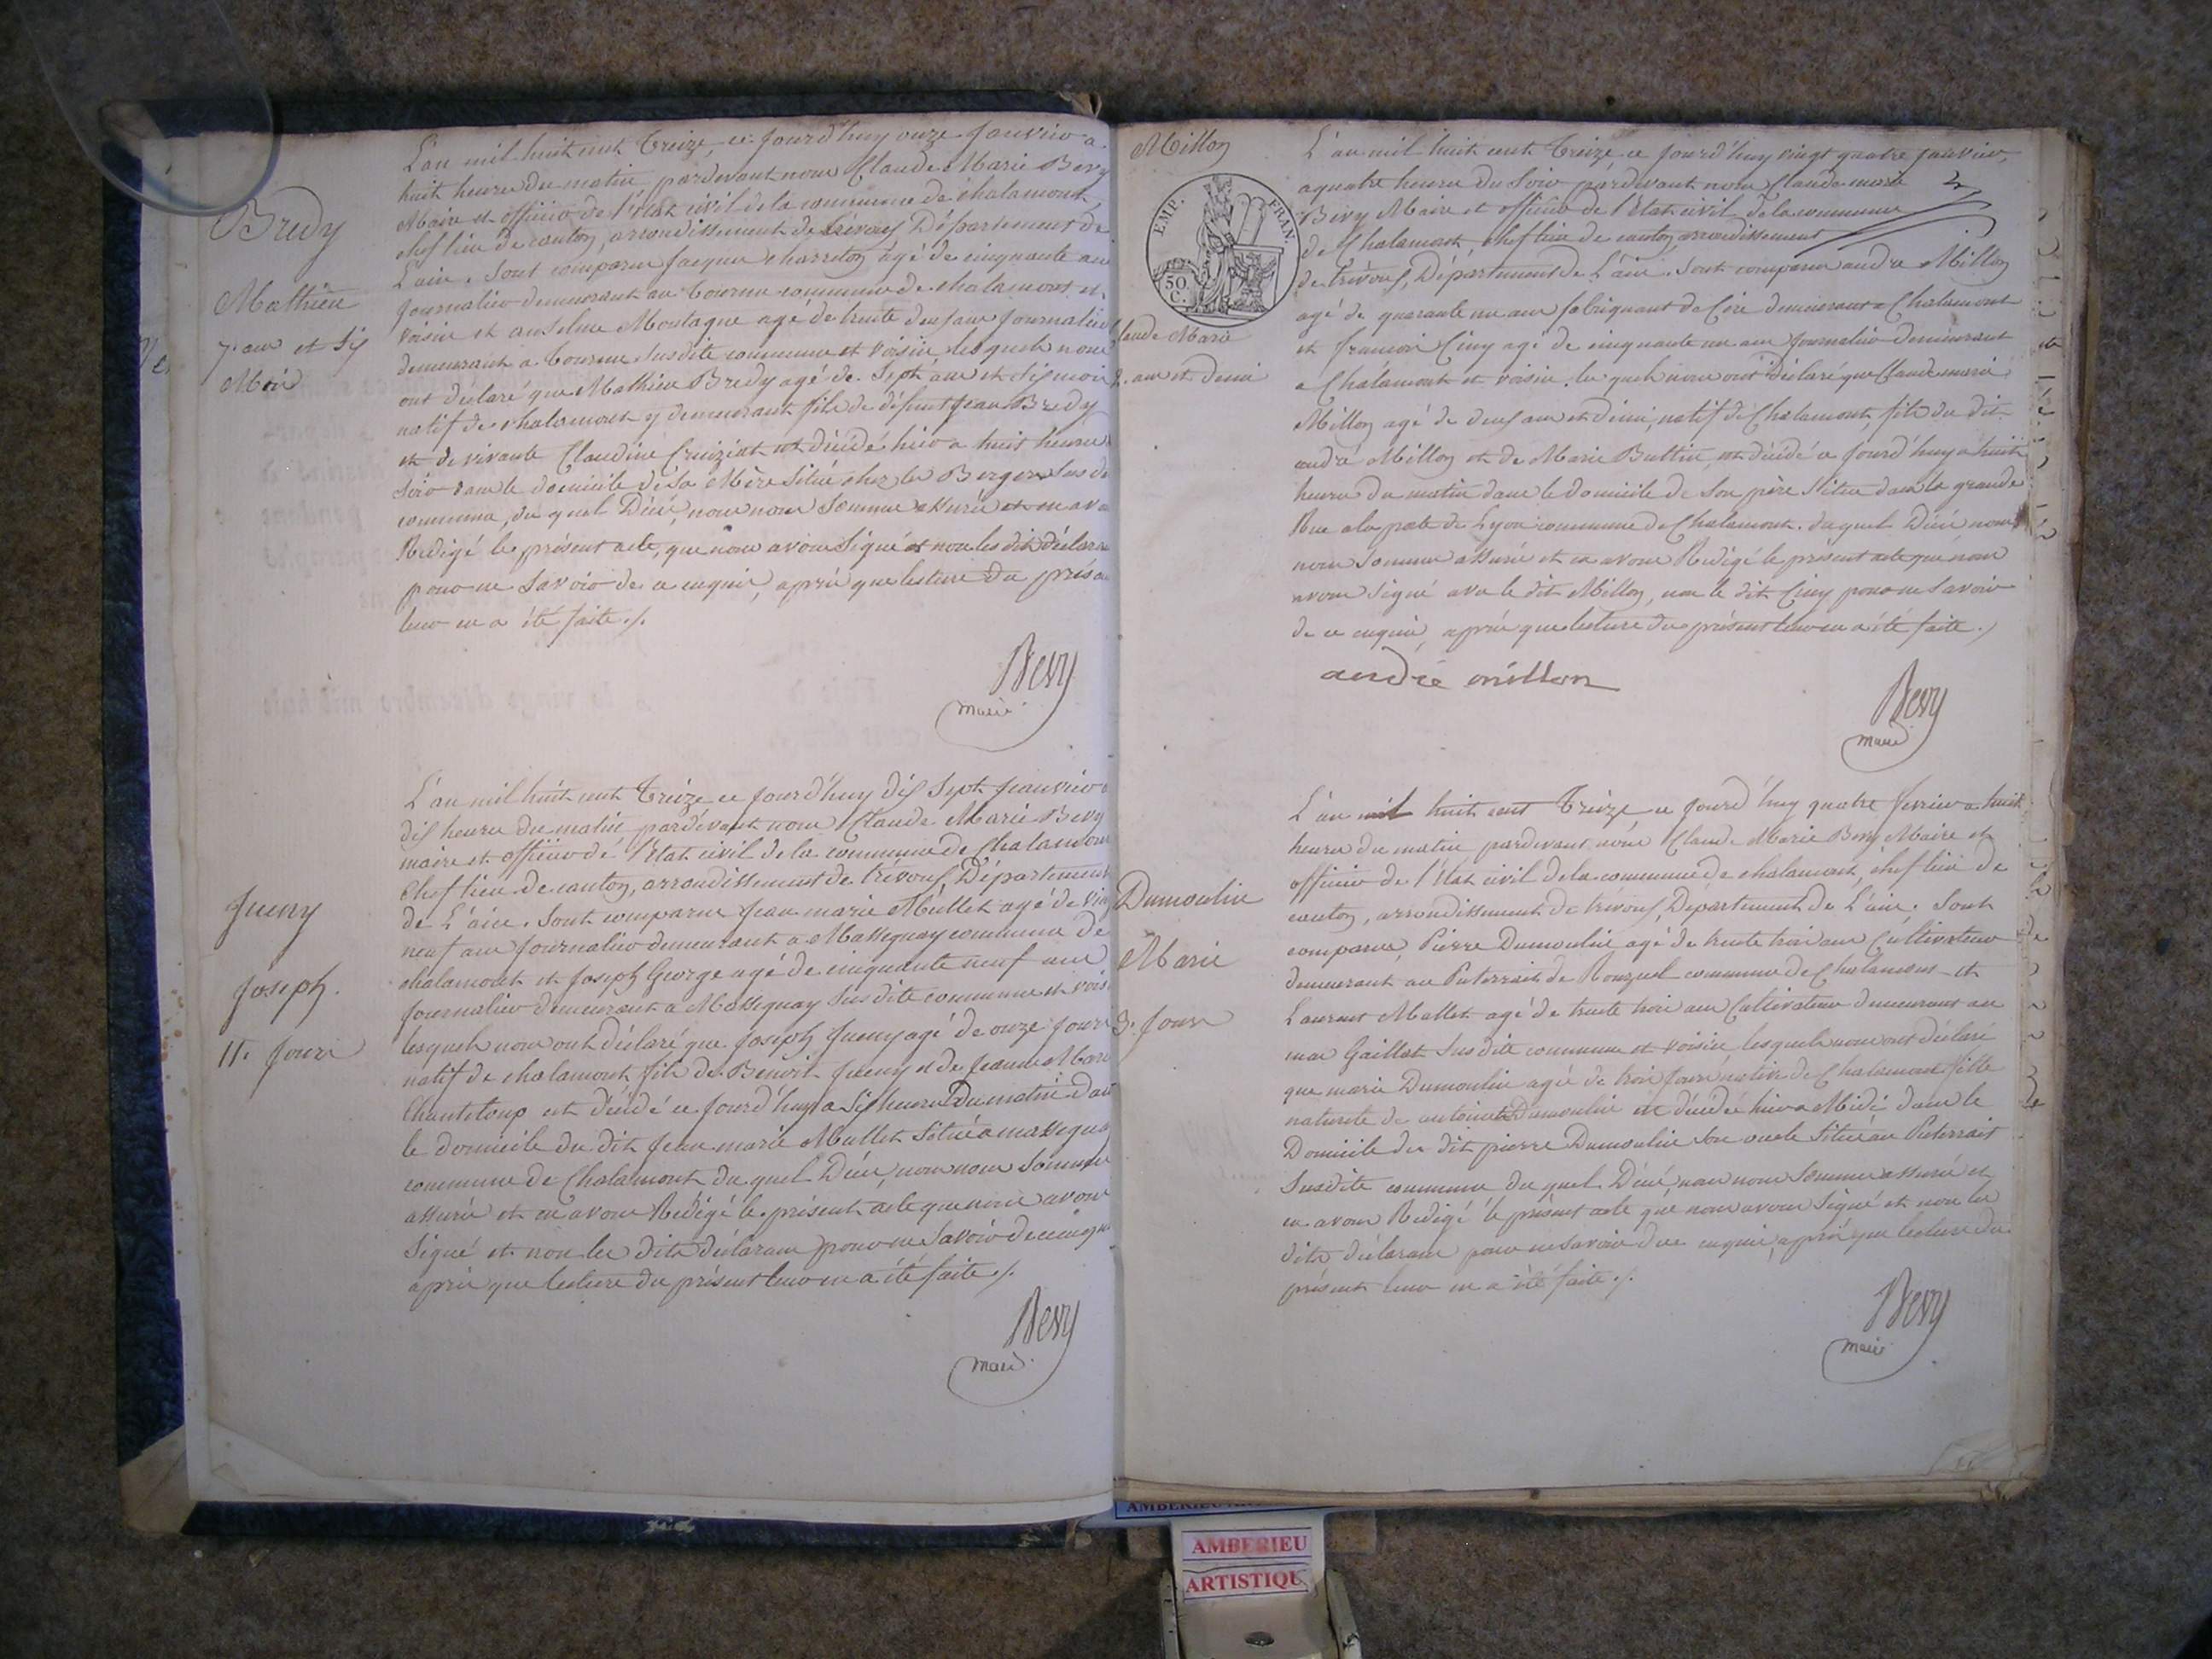 Bredy
Mathieu
7. ans et Six
Mois
L'an mil huit cent Treize, ce Jourd'huy onze Janvier a
huit heures du matin, pardevant nous Claude Marie Bevy
Maire et officier de l'état civil de la commune de chalamont,
chef lieu de canton, arrondissement de Trévoux, Département de
L'ain. Sont comparus Jacques charreton agé de cinquante ans
Journalier demeurant au commune de chalamont et
voisin et anselme Montagne agé de trente deux ans Journalier
demeurant a Susdite commune et voisin, lesquels nous
ont déclaré que Mathieu Bredy agé de Sept ans et Six mois
natif de chalamont y demeurant fils de défunt Jean Bredy
et de vivante Claudine Cruiziat est décédé hier a huit heures
Soir dans le domicile de Sa Mère Situé chez les Berger Sus de
commune, du quel Décé, nous nous Sommes assurés et en avo
Redigé le présent acte, que nous avons Signé et non les dits déclara
pour ne Savoir de ce enquis, après que lecture du présen
leur en a été faite ./.
Bevy
maire
Jueny
Joseph.
11. Jours
L'an mil huit cent Treize ce Jourd'huy dix Sept Janvier a
dix heures du matin pardevant nous Claude Marie Bevy
maire et officier de l'Etat civil de la commune de Chalamont
Chef lieu de canton, arrondissement de trévoux, Département
de L'ain. Sont comparus Jean marie Mullet agé de vin
neuf ans Journalier demeurant a Massignay commune de
chalamont et Joseph George agé de cinquante neuf ans
Journalier demeurant a Massignay Susdite commune et vois
lesquels nous ont déclaré que Joseph Jueny agé de onze Jours
natif de chalamont fils de Benoit Jueny et de Jeanne Mari
Chanteloup est décédé ce Jourd'huy a Six heures Du matin dan
le domicile du dit Jean marie Mullet Situé a massigna
commune de Chalamont du quel Décé, nous nous Sommes
assurés et en avons Rédigé le présent acte que nous avons
Signé et non les dits déclarans pour ne Savoir de ce enquis
après que lecture du présent leur en a été faite ./.
Bevy
maire
Millon
EMP. FRAN.
50 C.
Claude Marie
2. ans et demi
L'an mil huit cent Treize ce Jourd'huy vingt quatre Janvier,
a quatre heures du Soir pardevant nous Claude marie
Bevy Maire et officier de l'Etat civil de la commune
de Chalamont, chef lieu de canton arrondissement
de trévoux, Département de L'ain. Sont comparus andré Millon
agé de quarante un ans fabriquant de Cire demeurant a Chalamont
et francois Cuny agé de cinquante un ans Journalier demeurant
a Chalamont et voisin. les quels nous ont déclaré que Claude marie
Millon agé de deux ans et demi, natif de Chalamont, fils du dit
andré Millon et de Marie Buttin, est décédé ce Jourd'huy a huit
heures du matin dans le domicile de Son père Situé dans la grande
Rue a la porte de Lyon commune de Chalamont. du quel Décé nous
nous Sommes assurés et en avons Redigé le présent acte que nous
avons Signé avec le dit Millon, non le dit Cuny pour ne Savoir
de ce enquis, après que lecture du présent leur en a été faite ./
andré millon
Bevy
maire
Dumoulin
Marie
3. Jours
L'an mil huit cent Treize ce Jourd'huy quatre fevrier a huit
heures du matin pardevant nous Claude Marie Bevy Maire et
officier de l'état civil de la commune de chalamont, chef lieu de
canton, arrondissement de trévoux, Département de L'ain. Sont
comparus, Pierre Dumoulin agé de trente trois ans Cultivateur
demeurant au Puterrait de Ronzuel commune de Chalamont et
Laurent Mallet agé de trente trois ans Cultivateur demeurant au
mas Gaillat Susdite commune et voisin lesquels nous ont déclaré
que marie Dumoulin agée de trois Jours native de Chalamont fille
naturelle de antoinette Dumoulin est décédée hier a Midi dans le
Domicile du dit pierre Dumoulin Son oncle Situé au Puterrait
Susdite commune du quel Décé, nous nous Sommes assurés et
en avons Redigé le présent acte que nous avons Signé et non les
dits déclarans pour ne Savoir de ce enquis, après que lecture du
présent leur en a été faite ./.
Bevy
maire
AMBERIEU
ARTISTIQU